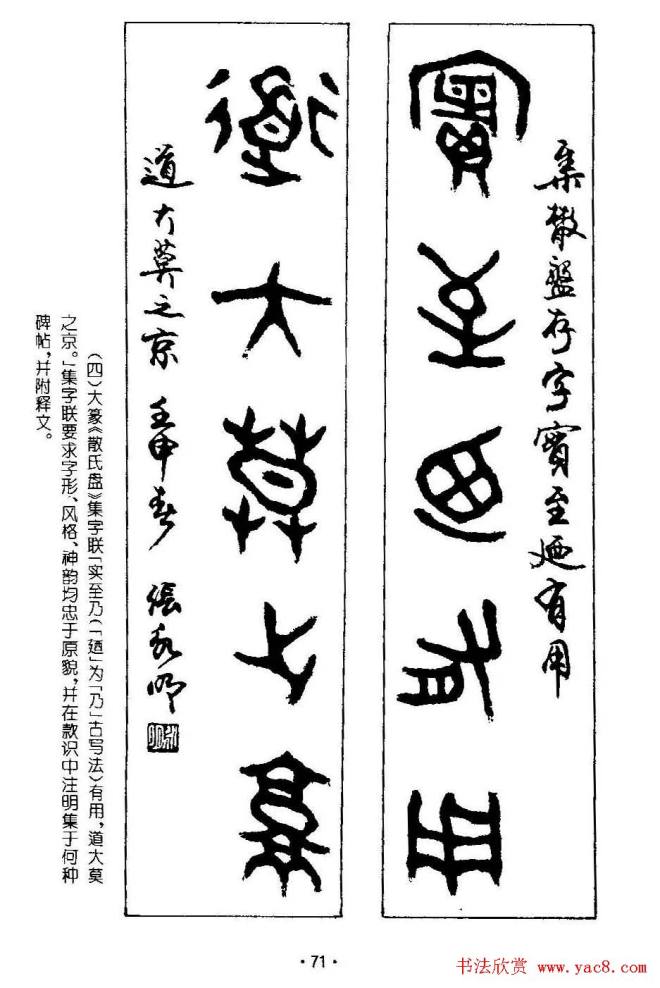 集散盤存字實至廼有用
實至廼有用
道大莫之京
道大莫之京 壬申春 張永明
(四)大篆《散氏盘》集字联「实至乃(「廼」为「乃」古写法)有用,道大莫
之京。」集字联要求字形、风格、神韵均忠于原貌,并在款识中注明集于何种
碑帖,并附释文。
·71·
书法欣赏 www.yac8.com